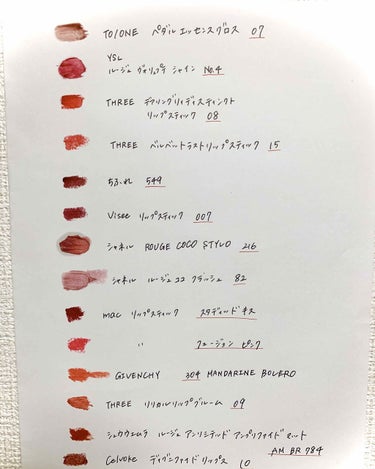 TO/ONE ペタル エッセンス グロス 07
YSL
ルージュ ヴォリュプテ シャイン No.4
THREE デアリングリィディスティンクト
リップスティック 08
THREE ベルベットラストリップスティック 15
ちふれ 549
Visee リップスティック 007
シャネル ROUGE COCO STYLO 216
シャネル ルージュ ココ フラッシュ 82
mac リップスティック スタディッドキス
〃 フュージョン ピンク
GIVENCHY 304 MANDARINE BOLERO
THREE リリカルリップブルーム 09
シュウウエムラ ルージュ アンリミテッド アンプリファイド マット
AM BR 784
Celvoke ディグニファイド リップス 10